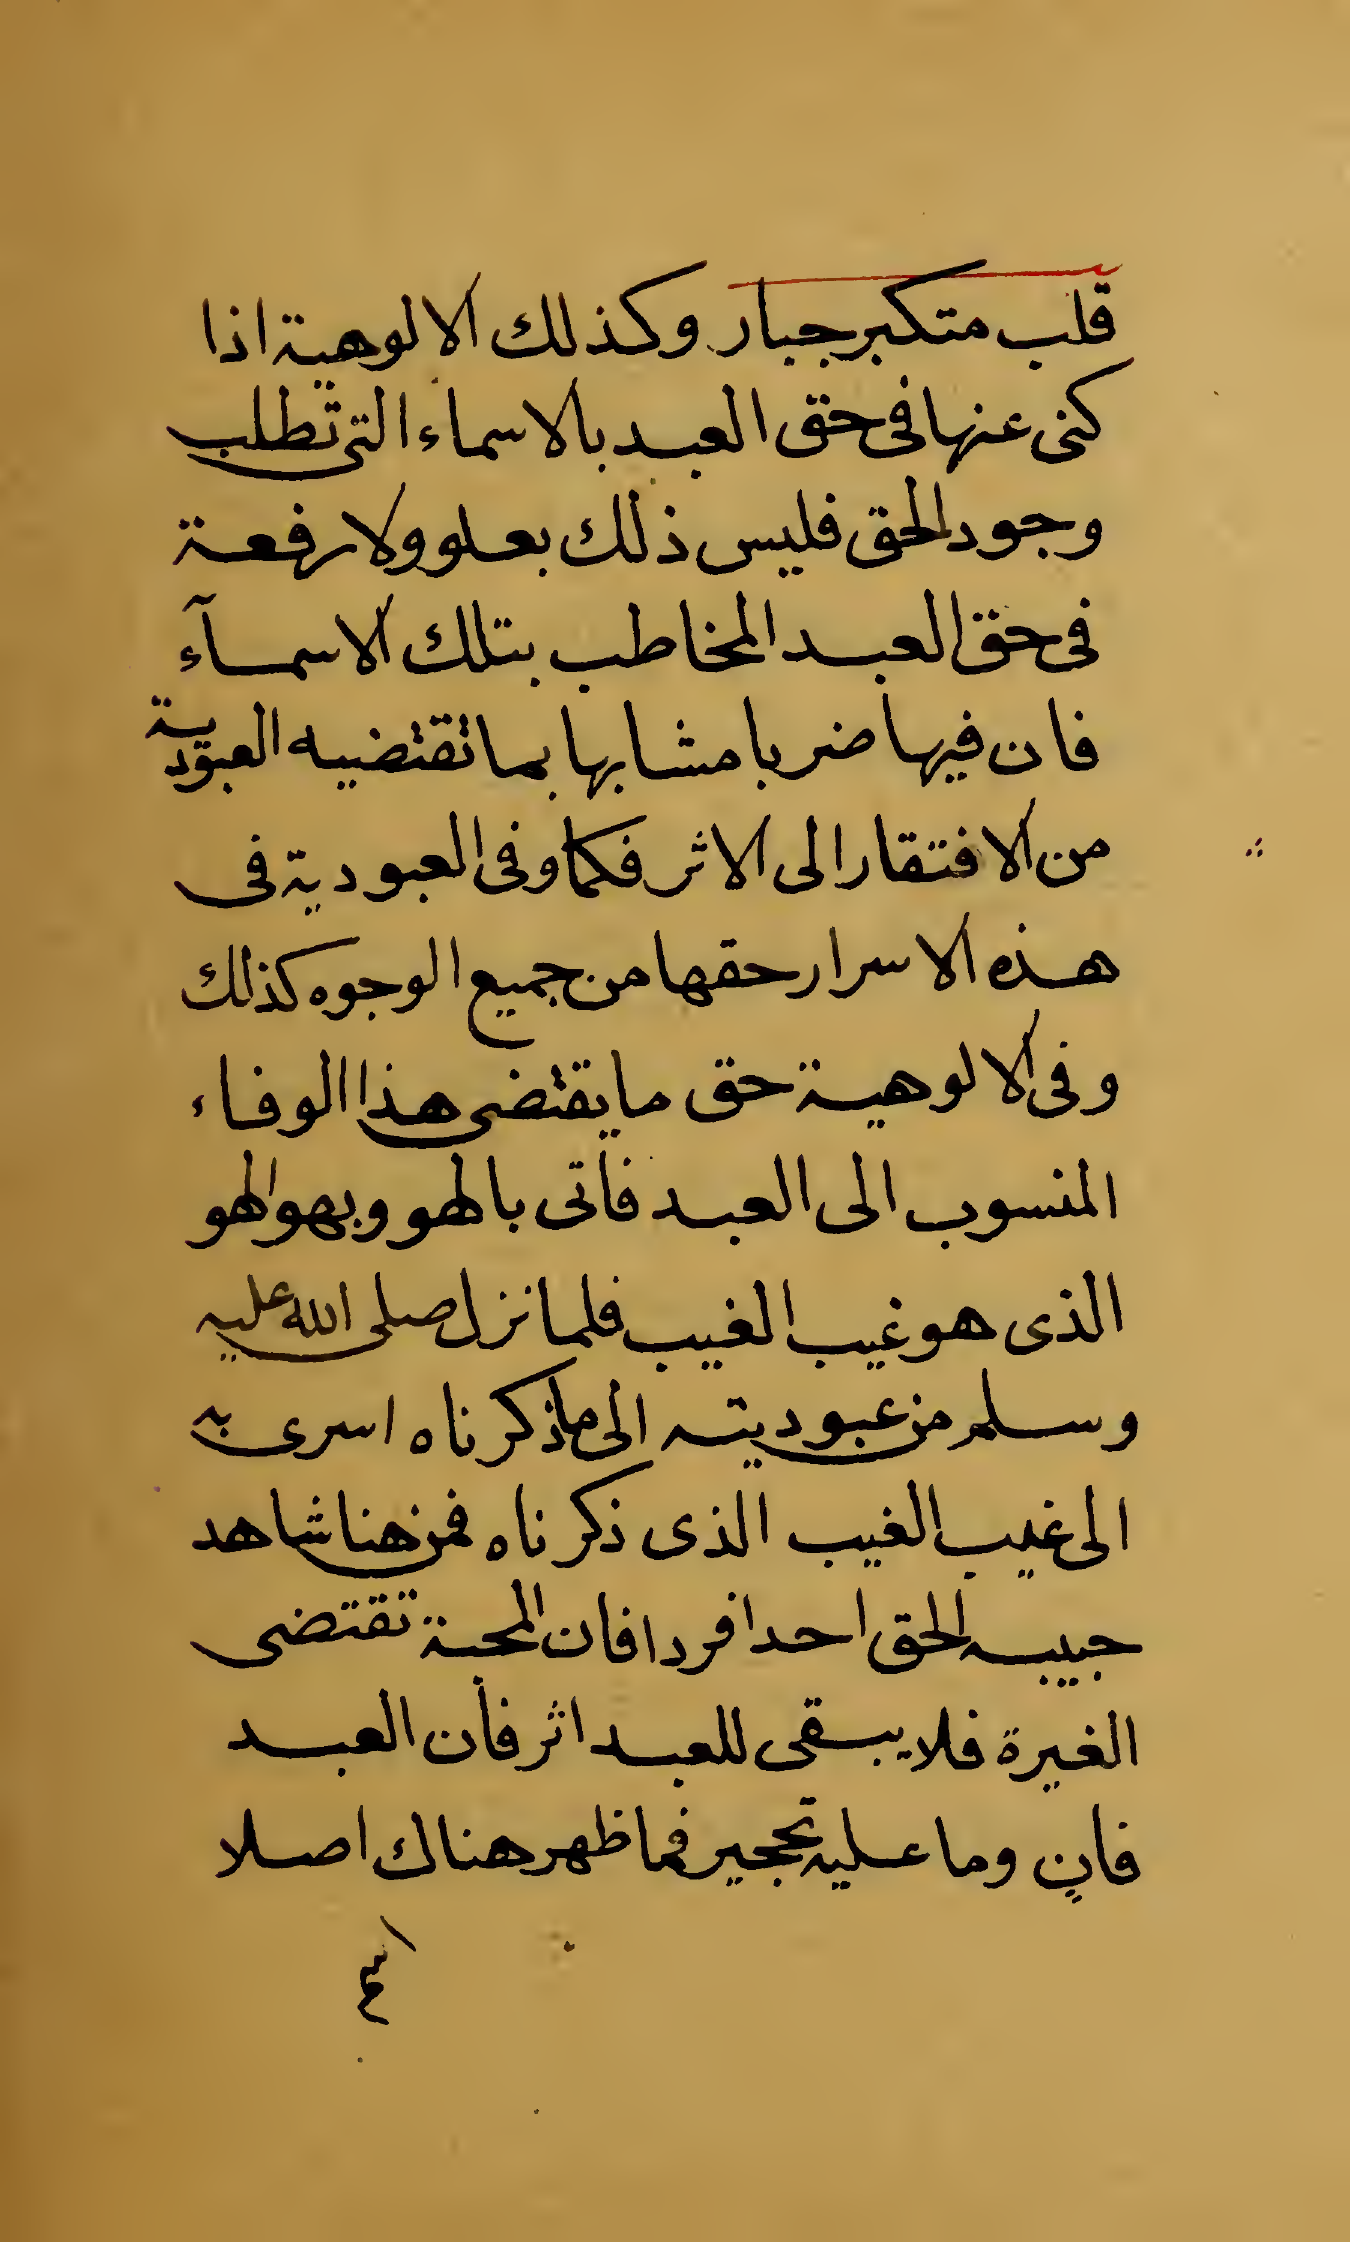 قلب متكبر جبار وكذلك الالوهية اذا
كنى عنها فى حق العبد بالاسماء التى تطلب
وجود الحق فليس ذلك بعلو ولا رفعة
فى حق العبد المخاطب بتلك الاسمآء
فان فيها ضربا مشابها بما تقتضيه العبودية
من الافتقار الى الاثر فكما وفى العبودية فى
هذه الاسرار حقها من جميع الوجوه كذلك
وفى الالوهية حق ما يقتضى هذا الوفاء
المنسوب الى العبد فاتى بالهو وبهو الهو
الذى هو غيب الغيب فلما نزل صلى الله عليه
وسلم من عبوديته الى ما ذكرناه اسرى به
الى غيب الغيب الذى ذكرناه فمن هنا شاهد
حبيبه الحق احدا فردا فان المحبة تقتضى
الغيرة فلا يبقى للعبد اثر فأن العبد
فانٍ وما عليه تحجير فما ظهر هناك اصلا